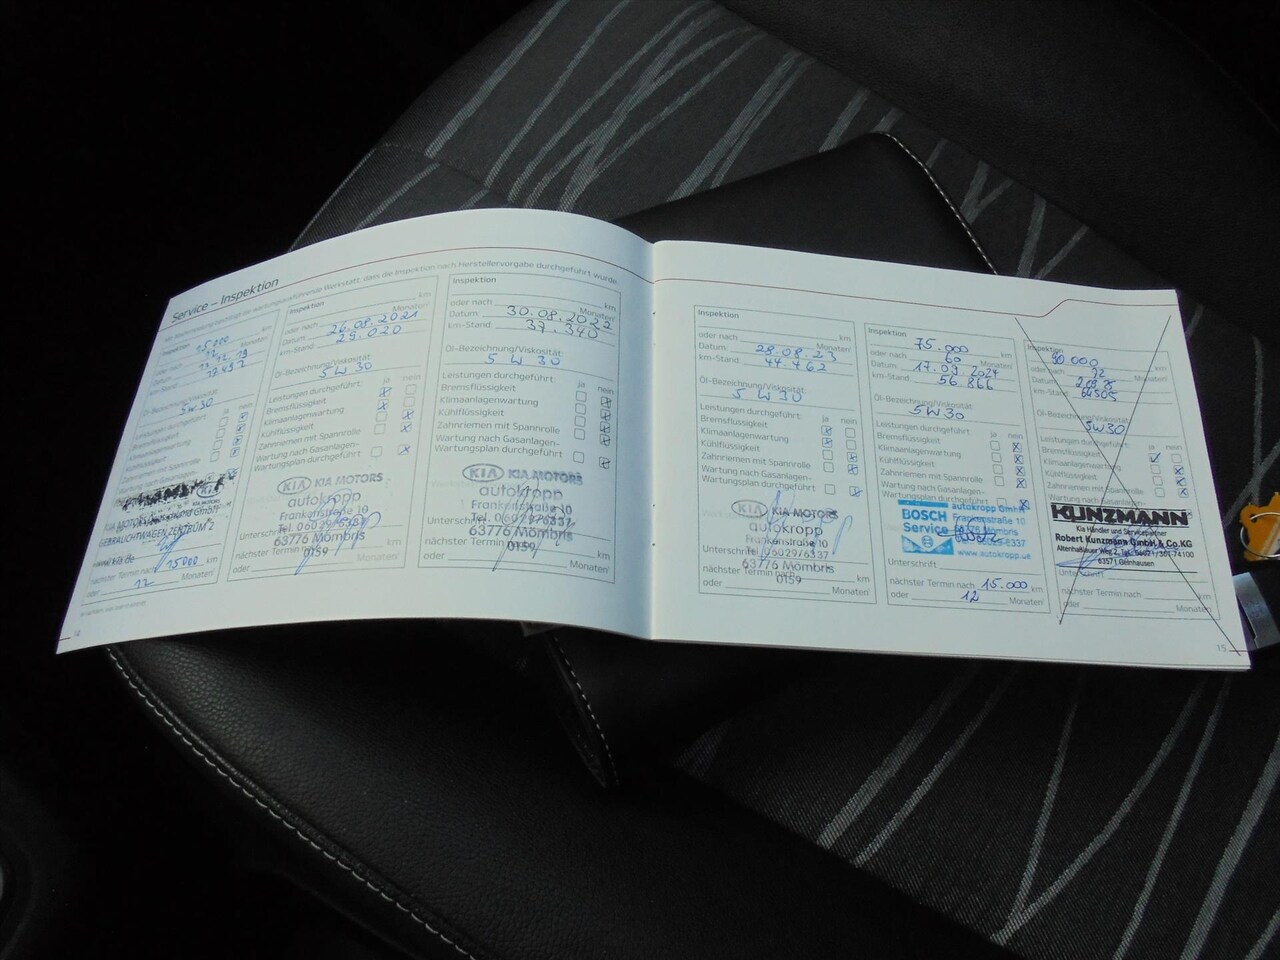 Service – Inspektion
dass die Inspektion nach Herstellervorgabe durchgeführt wurde
Inspektion 15000 km
oder nach Monaten
Datum:
km-Stand:
Öl-Bezeichnung/Viskosität
5W30
Leistungen durchgeführt: ja nein
Bremsflüssigkeit
Klimaanlagenwartung
Kühlflüssigkeit
Zahnriemen mit Spannrolle
Wartung nach Gasanlagen-
KIA
KIA MOTORS Deutschland GmbH
GEBRAUCHTWAGEN ZENTRUM 2
nächster Termin nach 15000 km
oder 12 Monaten
14
Inspektion km
oder nach Monaten
Datum: 26.08.2021
km-Stand: 29.020
Öl-Bezeichnung/Viskosität
5W30
Leistungen durchgeführt: ja nein
Bremsflüssigkeit
Klimaanlagenwartung
Kühlflüssigkeit
Zahnriemen mit Spannrolle
Wartung nach Gasanlagen-
Wartungsplan durchgeführt
KIA KIA MOTORS
autokropp
Frankenstraße 10
Tel. 06029/6337
63776 Mömbris
0159
Unterschrift
nächster Termin nach km
oder Monaten
Inspektion km
oder nach Monaten
Datum: 30.08.2022
km-Stand: 37.340
Öl-Bezeichnung/Viskosität
5W30
Leistungen durchgeführt: ja nein
Bremsflüssigkeit
Klimaanlagenwartung
Kühlflüssigkeit
Zahnriemen mit Spannrolle
Wartung nach Gasanlagen-
Wartungsplan durchgeführt
KIA KIA MOTORS
autokropp
Frankenstraße 10
Tel. 06029/6337
63776 Mömbris
0159
Unterschrift
nächster Termin nach km
oder Monaten
Inspektion
km
oder nach Monaten
Datum: 28.08.23
km-Stand: 44.462
Öl-Bezeichnung/Viskosität
5W30
Leistungen durchgeführt: ja nein
Bremsflüssigkeit
Klimaanlagenwartung
Kühlflüssigkeit
Zahnriemen mit Spannrolle
Wartung nach Gasanlagen-
Wartungsplan durchgeführt
KIA KIA MOTORS
autokropp
Frankenstraße 10
Tel. 06029/6337
63776 Mömbris
0159
Unterschrift
nächster Termin nach km
oder Monaten
Inspektion
75.000 km
oder nach 60 Monaten
Datum: 17.09.2024
km-Stand: 56.866
Öl-Bezeichnung/Viskosität
5W30
Leistungen durchgeführt: ja nein
Bremsflüssigkeit
Klimaanlagenwartung
Kühlflüssigkeit
Zahnriemen mit Spannrolle
Wartung nach Gasanlagen-
Wartungsplan durchgeführt
BOSCH
Service
autokropp GmbH
Frankenstraße 10
www.autokropp.de
Unterschrift
nächster Termin nach 15.000 km
oder 12 Monaten
Inspektion
90.000 km
oder nach 72 Monaten
Datum:
km-Stand: 64505
Öl-Bezeichnung/Viskosität
5W30
Leistungen durchgeführt: ja nein
Bremsflüssigkeit
Klimaanlagenwartung
Kühlflüssigkeit
Zahnriemen mit Spannrolle
Wartung nach Gasanlagen-
KUNZMANN
Kia Händler und Servicepartner
Robert Kunzmann GmbH & Co.KG
63571 Gelnhausen
Unterschrift
nächster Termin nach km
oder Monaten
15